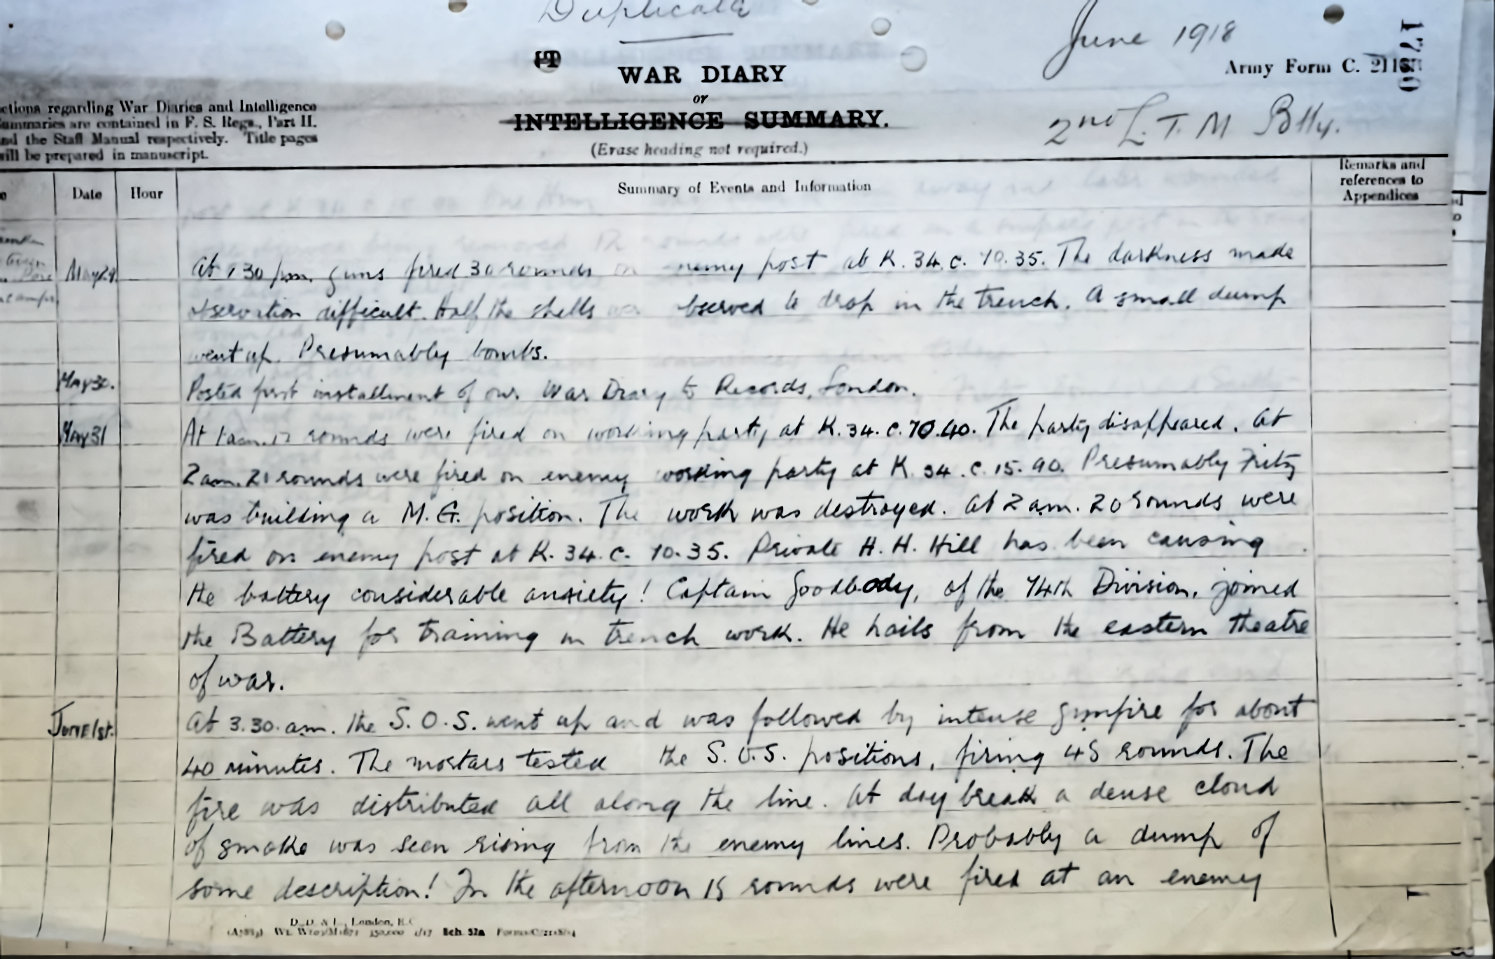 Duplicate
June 1918
WAR DIARY
or
INTELLIGENCE SUMMARY.
(Erase heading not required.)
Army Form C.
2nd L. T. M Btty.
ctions regarding War Diaries and Intelligence
ummaries are contained in F. S. Regs., Part II.
nd the Staff Manual respectively. Title pages
ill be prepared in manuscript.
Date Hour Summary of Events and Information Remarks and
references to
Appendices
At 30 p.m. guns fired 30 rounds on enemy post at K. 34. c. 70. 35. The darkness made
observation difficult. Half the shells observed to drop in the trench. A small dump
went up. Presumably bombs.
May 30. Posted first installment of our War Diary to Records, London.
May 31 At 1 am. rounds were fired on working party at K. 34. c. 70.40. The party disappeared. At
2 am. 20 rounds were fired on enemy working party at K. 34. c. 15. 90. Presumably Fritz
was building a M. G. position. The work was destroyed. At 2 am. 20 rounds were
fired on enemy post at K. 34. c. 70. 35. Private H. H. Hill has been causing
the battery considerable anxiety! Captain Goodbody, of the 74th Division, joined
the Battery for training in trench work. He hails from the eastern theatre
of war.
June 1st. At 3.30. am. the S. O. S. went up and was followed by intense gunfire for about
40 minutes. The mortars tested the S. O. S. positions, firing 45 rounds. The
fire was distributed all along the line. At day break a dense cloud
of smoke was seen rising from the enemy lines. Probably a dump of
some description! In the afternoon 15 rounds were fired at an enemy
D. D. & L., London, E.C.
Sch. 52a